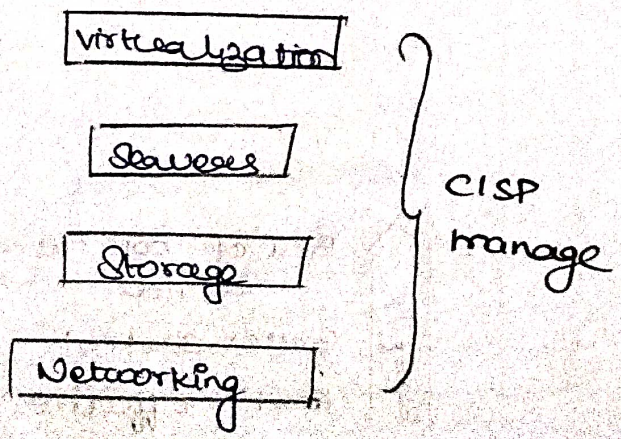 Virtualization
Servers
Storage
Networking
CISP
manage